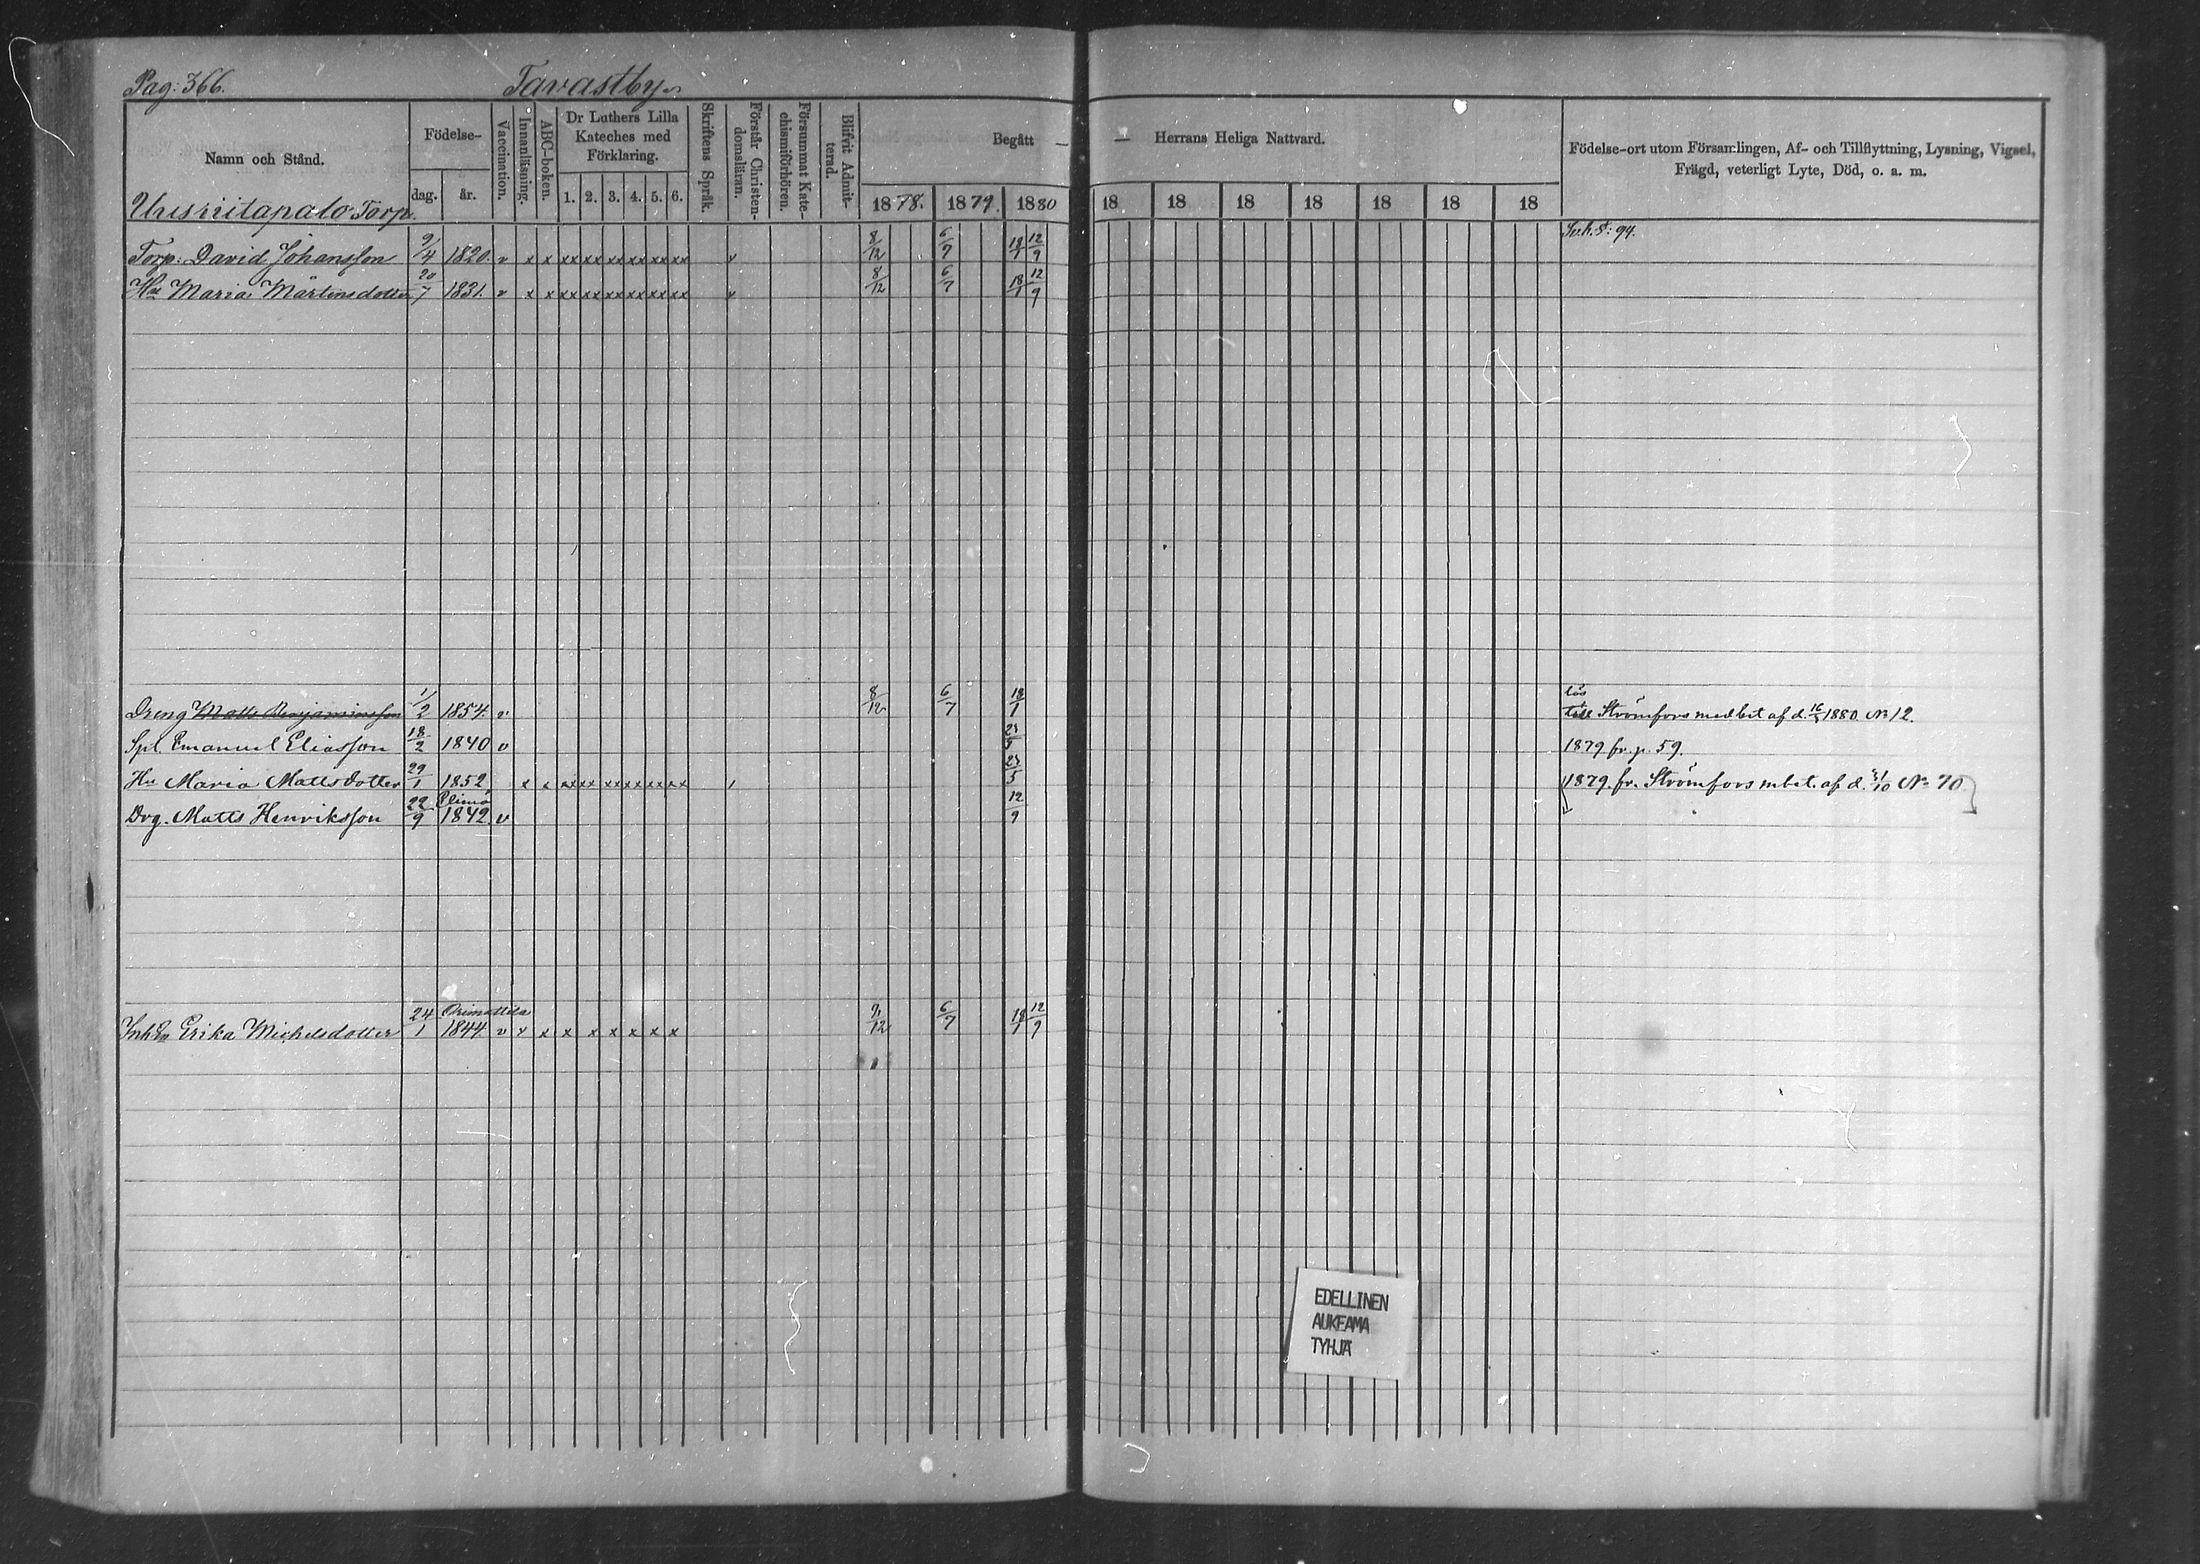 Pag: 366. Tavastby
Namn och Stånd. Födelse- dag. år. Vaccination. Innanläsning. ABC-boken. Dr Luthers Lilla Kateches med Förklaring. 1. 2. 3. 4. 5. 6. Skriftens Språk. Förstår Christendomsläran. Försummat Katechismiförhören. Blifvit Admitterad. Begått — Herrans Heliga Nattvard. Födelse-ort utom Församlingen, Af- och Tillflyttning, Lysning, Vigsel, Frägd, veterligt Lyte, Död, o. a. m.
1878. 1879. 1880 18 18 18 18 18 18 18
Torp.
Torp: David Johansson 9/4 1820. v x x xx xx xx xx xx xx v 8/12 6/7 18/1 12/9
Hu Maria Mårtensdotter 20/7 1831. v x x xx xx xx xx xx xx v 8/12 6/7 18/1 12/9
Dreng Matts Benjaminsson 1/2 1854. v 8/12 6/7 18/1 lös till Strömfors med bet af d. 16/5 1880 No 12.
Spl. Emanuel Eliasson 18/2 1840 v 23/5 1879 fr. p. 59.
Hu Maria Mattsdotter 29/1 1852 x x xx xx xx xx xx xx 23/5 1879. fr. Strömfors m bet. af d. 31/10 No 70
Drg. Matts Henriksson 22/9 1842 v 12/9
Erika Michelsdotter 24/1 Orimattila 1844. v x x x x x x x x 12 6/7 18/1 12/9
EDELLINEN
AUKEAMA
TYHJÄ